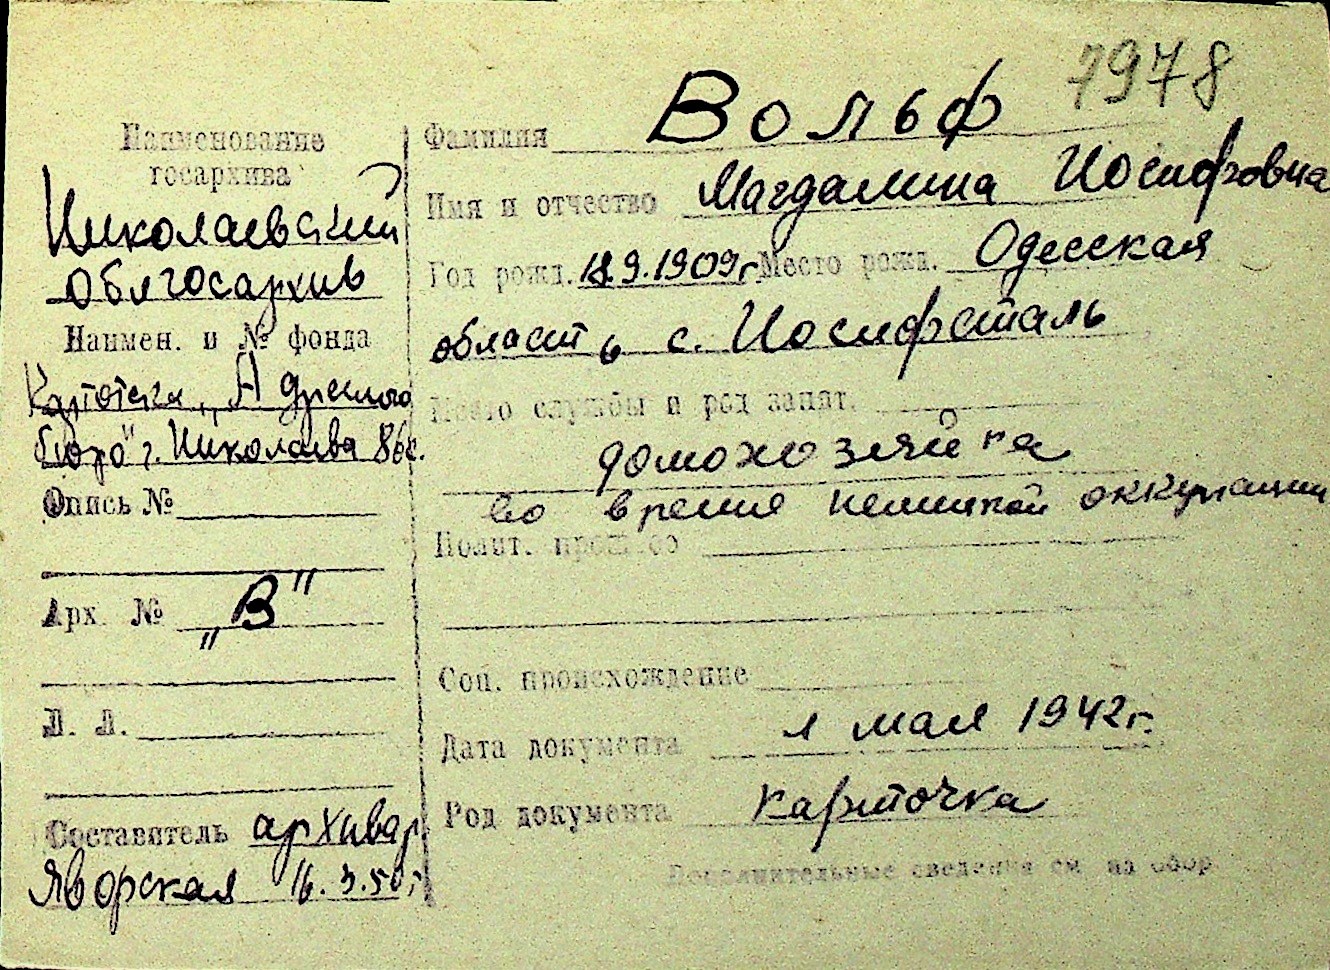 7978
Наименование
госархива
Николаевский
облгосархив
Наимен. и № фонда
Картотека „Адресного
бюро" г. Николаева
Опись №
Арх. № „В"
Л. Л.
Составитель архивар.
Яворская 16.3.50 г.
Фамилия Вольф
Имя и отчество Магдалина Иосифовна
Год рожд. 18.9.1909 г Место рожд. Одесская
область с. Иосифсталь
Место службы и род занят.
домохозяйка
во время немецкой оккупации
Полит. прошлое
Соц. происхождение
Дата документа 1 мая 1942 г.
Род документа карточка
Дополнительные сведения см на обор